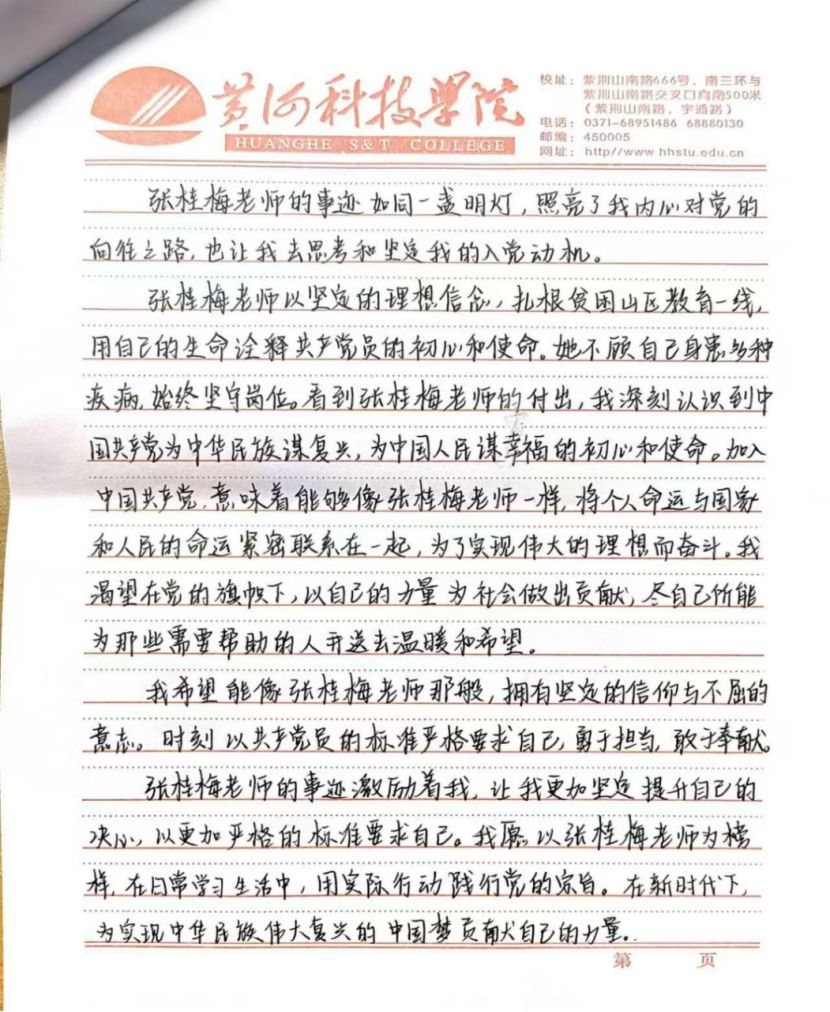 黄河科技学院
HUANGHE S&T COLLEGE
校址：紫荆山南路666号，南三环与
紫荆山南路交叉口向南500米
（紫荆山南路、宇通路）
电话：0371-68951486 68880130
邮编：450005
网址：http//www hhstu.edu.cn
张桂梅老师的事迹如同一盏明灯，照亮了我内心对党的
向往之路，也让我去思考和坚定我的入党动机。
张桂梅老师以坚定的理想信念，扎根贫困山区教育一线，
用自己的生命诠释共产党员的初心和使命。她不顾自己身患多种
疾病，始终坚守岗位。看到张桂梅老师的付出，我深刻认识到中
国共产党为中华民族谋复兴，为中国人民谋幸福的初心和使命。加入
中国共产党，意味着能够像张桂梅老师一样，将个人命运与国家
和人民的命运紧密联系在一起，为了实现伟大的理想而奋斗。我
渴望在党的旗帜下，以自己的力量为社会做出贡献，尽自己所能
为那些需要帮助的人开送去温暖和希望。
我希望能像张桂梅老师那般，拥有坚定的信仰与不屈的
意志。时刻以共产党员的标准严格要求自己，勇于担当，敢于奉献。
张桂梅老师的事迹激励着我，让我更加坚定提升自己的
决心，以更加严格的标准要求自己。我愿以张桂梅老师为榜
样，在日常学习生活中，用实际行动践行党的宗旨。在新时代下，
为实现中华民族伟大复兴的中国梦贡献自己的力量。
第 页